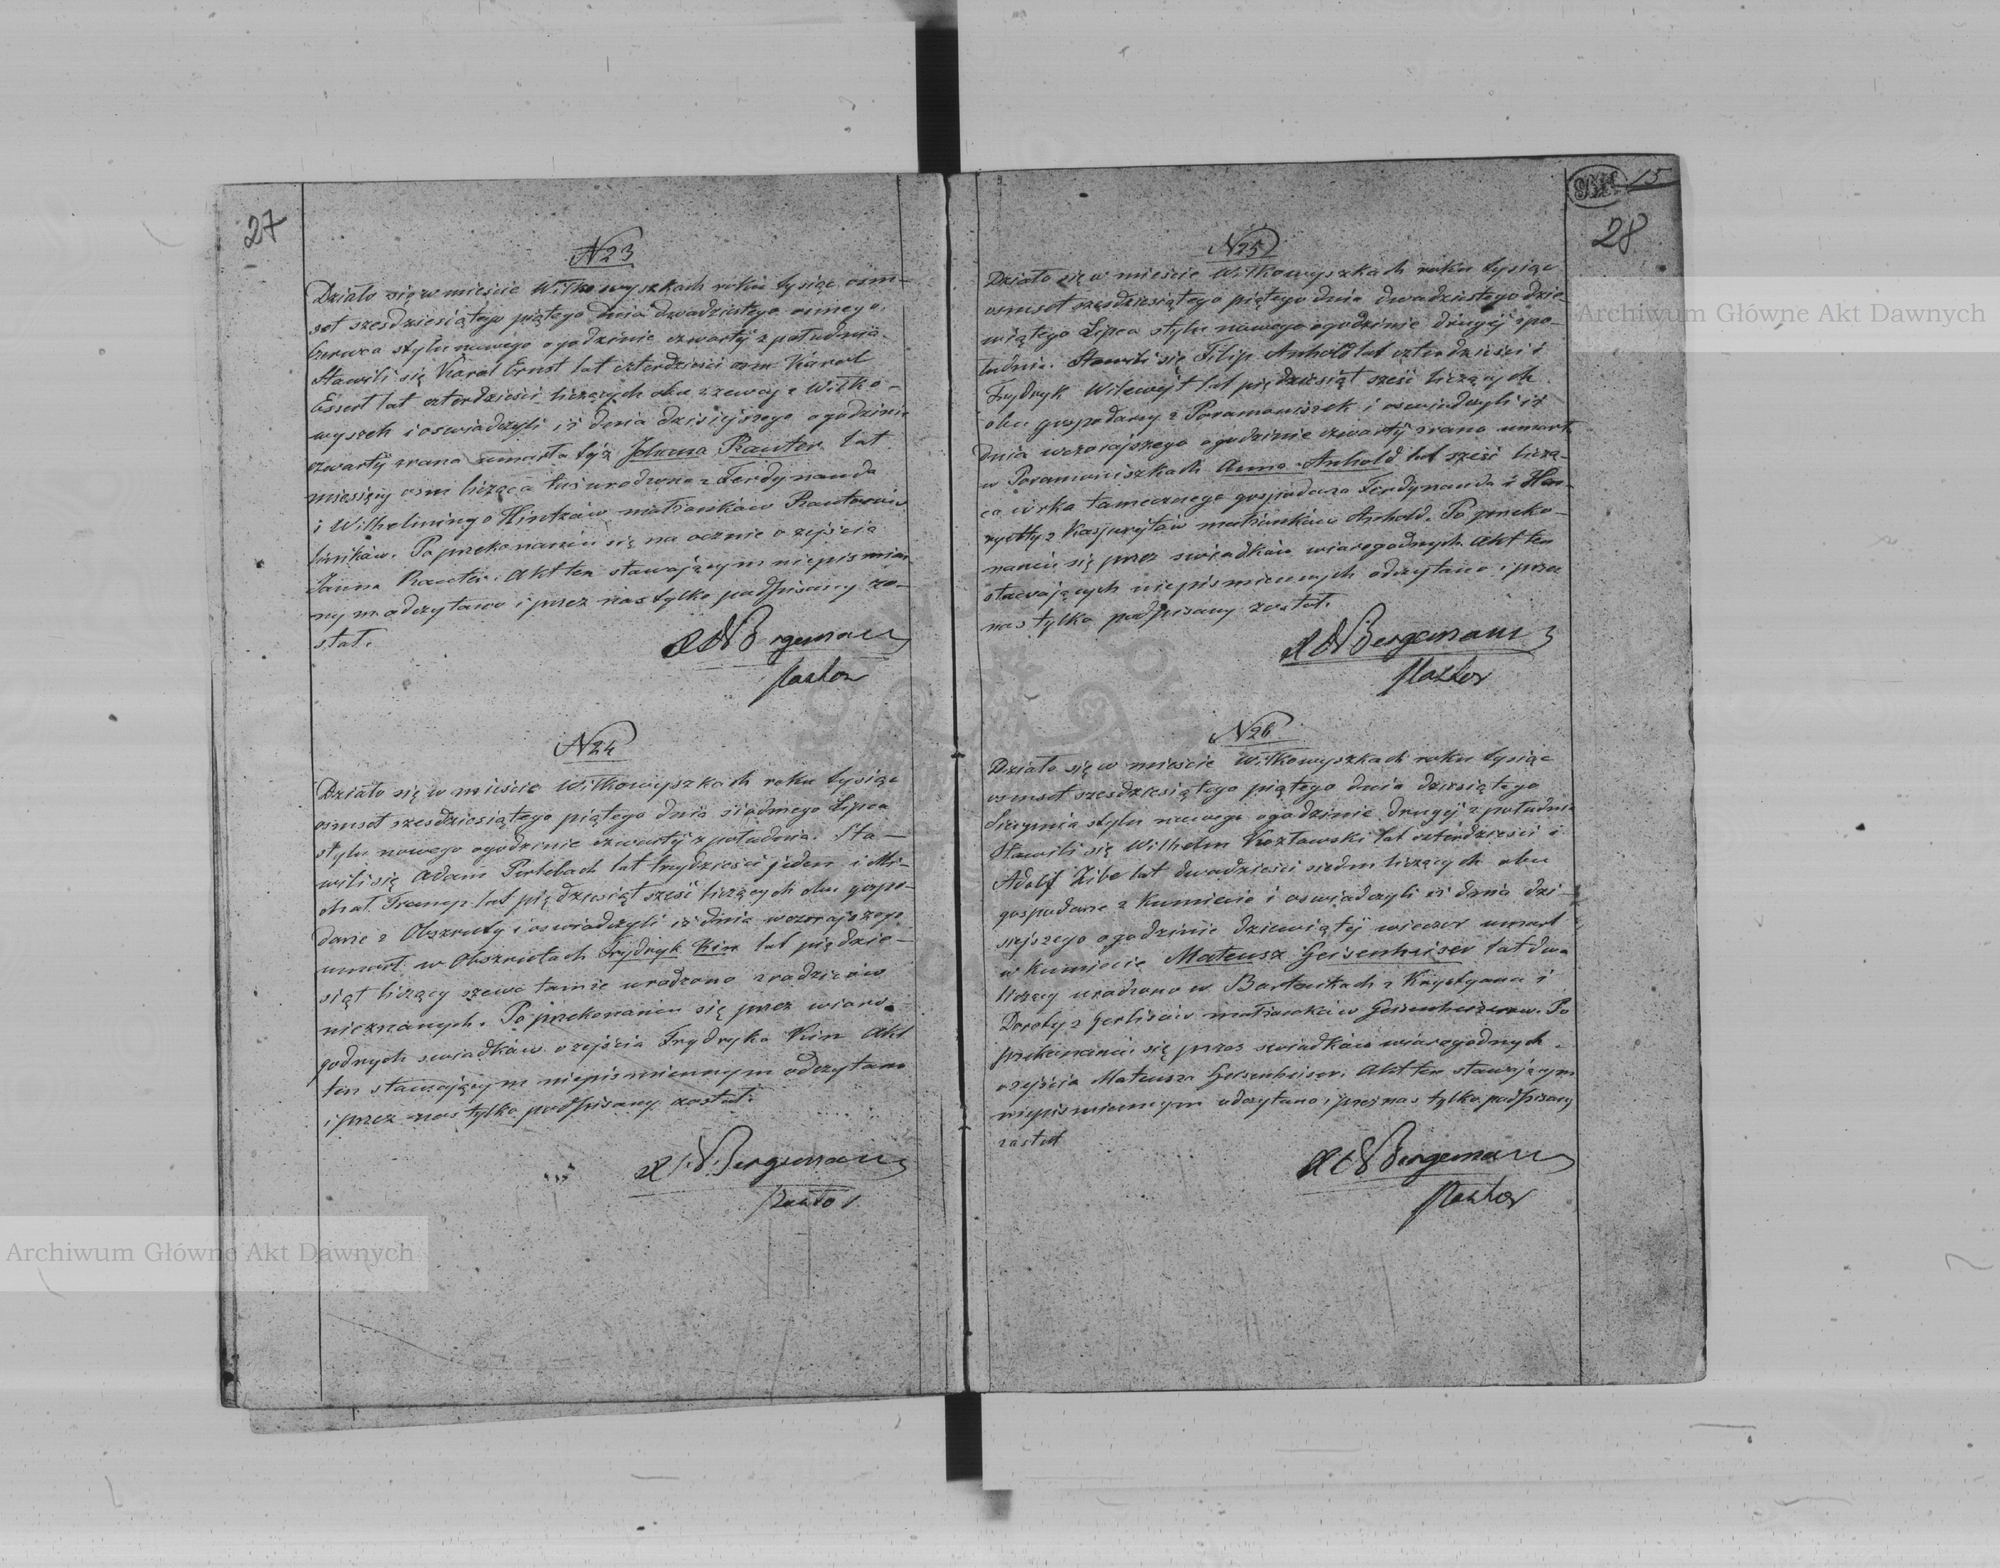 27
N23
Działo się w mieście Wiłkowyszkach roku tysiąc osm-
set szesdziesiątego piątego dnia dwadziestego osmego
Czerwca stylu nowego o godzinie czwartéj z południa
Stawili się Karol Ernst lat czterdzieści osm Karol
Essert lat czterdzieści liczących obu szewcy z Wiłko-
wyszek i oswiadczyli iż dnia dzisiejszego o godzinie
czwartéj zrana umarła tyż Johana Rauter lat
miesięcy osm licząca tu urodzona z Ferdynanda
i Wilhelminy z Hintzów małżonków Rauterów
. Po przekonaniu się na ocznie o zejściu
Rauter. Akt ten stawającym niepismien
nym odczytano i przez nas tylko podpisany zo-
stał.
Bergemann
Pastor
N24
Działo się w mieście Wiłkowyszkach roku tysiąc
osmset szesdziesiątego piątego dnia siódmego Lipca
stylu nowego o godzinie czwartéj z południa. Sta-
wili się Adam Perlebach lat trzydzieści jeden i Mi-
chał Tramp lat pięćdziesiąt sześć liczących obu gospo-
darze z Obszrut i oswiadczyli iż dnia wczorajszego
umarł w Obszrutach Frydryk Kin lat pięćdzie-
siąt liczący szewc tamże urodzony z rodziców
nieznanych. Po przekonaniu się przez wiaro-
godnych swiadków o zejściu Frydryka Kin Akt
ten stawającym niepismiennym odczytano
i przez nas tylko podpisany został.
Bergemann
Pastor
15
28
N25
Działo się w mieście Wiłkowyszkach roku tysiąc
osmset szesdziesiątego piątego dnia dwadziestego dzie-
wiątego Lipca stylu nowego o godzinie drugiéj z po-
łudnia. Stawili się Filip Anhold lat czterdzieści i
Frydryk lat pięćdziesiąt sześć liczących
obu gospodarzy z i oswiadczyli iż
dnia wczorajszego o godzinie czwartéj zrana umarła
w Anna Anhold lat sześć liczą-
ca córka tamecznego gospodarza Ferdynanda i Hen-
ryetty z małżonków Anhold. Po przeko-
naniu się przez swiadków wiarogodnych Akt ten
stawających niepismiennych odczytano i przez
nas tylko podpisany został.
Bergemann
Pastor
N26
Działo się w mieście Wiłkowyszkach roku tysiąc
osmset szesdziesiątego piątego dnia dziesiątego
Sierpnia stylu nowego o godzinie drugiéj z południa
Stawili się Wilhelm Kozłowski lat czterdzieści i
Adolf Zibe lat dwadzieścia siedm liczących obu
gospodarze z i oswiadczyli iż dnia dzi-
siejszego o godzinie dziewiątéj wieczor umarł
w Mateusz Geisenheiser lat dwa
liczący urodzony w Bartnikach z Krystyana i
Doroty z małżonków Geisenheiserow. Po
przekonaniu się przez swiadków wiarogodnych
o zejściu Mateusza Geisenheiser. Akt ten stawającym
niepismiennym odczytano i przez nas tylko podpisany
został
Bergemann
Pastor
Archiwum Główne Akt Dawnych
Archiwum Główne Akt Dawnych